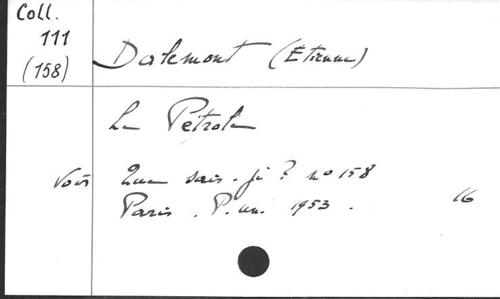 Coll.
111
(158)
Dalemont (Étienne)
Le Pétrole
Voir Que sais-je ? no 158
Paris. P.un. 1953. 16